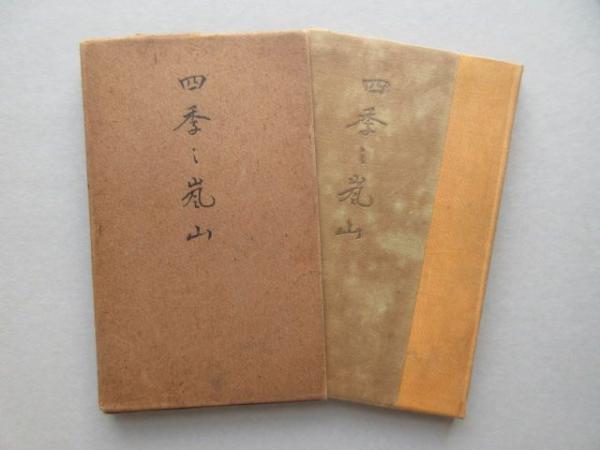 四季之嵐山
四季之嵐山